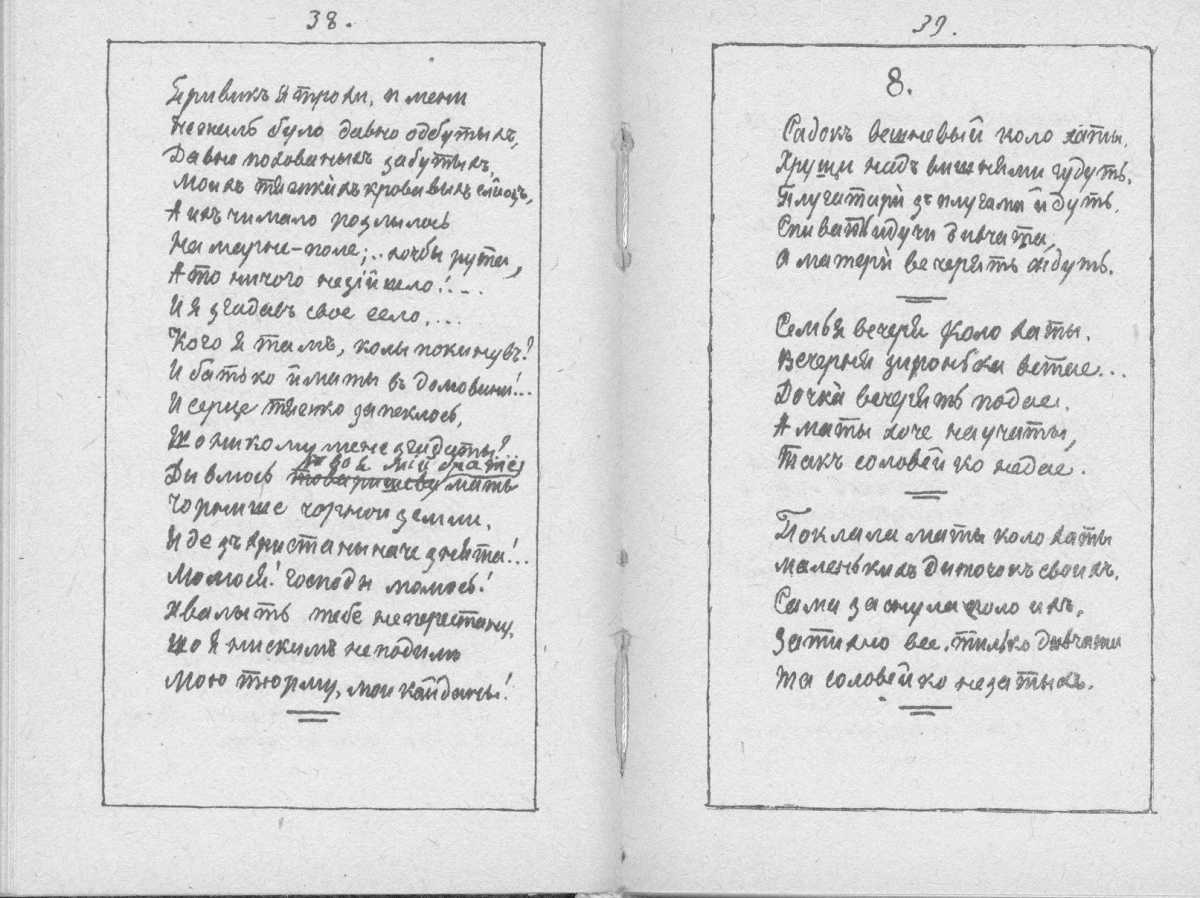 38.
Привикъ я трохи, и мени
Нежаль було давно одбутыхъ,
Давно похованыхъ забутыхъ,
Моихъ тяжкихъ кровавыхъ слёзъ,
А ихъ чимало розлилось
На марне-поле;.. хочбы рута,
А то ничого незійшло!....
И я згадавъ свое село....
Кого я тамъ, коли покинувъ?
И батько й маты въ домовини!...
И серце тяжко запеклось,
Що никому мене згадаты?..
Дывлюсь твоя мій брате
товаришеву мать
Чорнише чорнои земли,
Иде зъ христа ныначе знята!...
Молюся! Господи молюсь!
Хвалыть тебе неперестану,
Що я нискимъ неподилю
Мою тюрму, мои кайданы!
39.
8.
Садокъ вешневый коло хаты,
Хрущи надъ вишнями гудуть.
Плугатари зъ плугами йдуть,
Спивають идучи дивчата,
А матери вечерять ждуть.
Семья вечеря коло хаты.
Вечерня зиронька встае...
Дочка вечерять подае.
А маты хоче научаты,
Такъ соловейко недае.
Поклала маты коло хаты
Маленькихъ диточокъ своихъ,
Сама заснула коло ихъ,
Затихло все, тилько дивчата
Та соловейко незатыхъ.